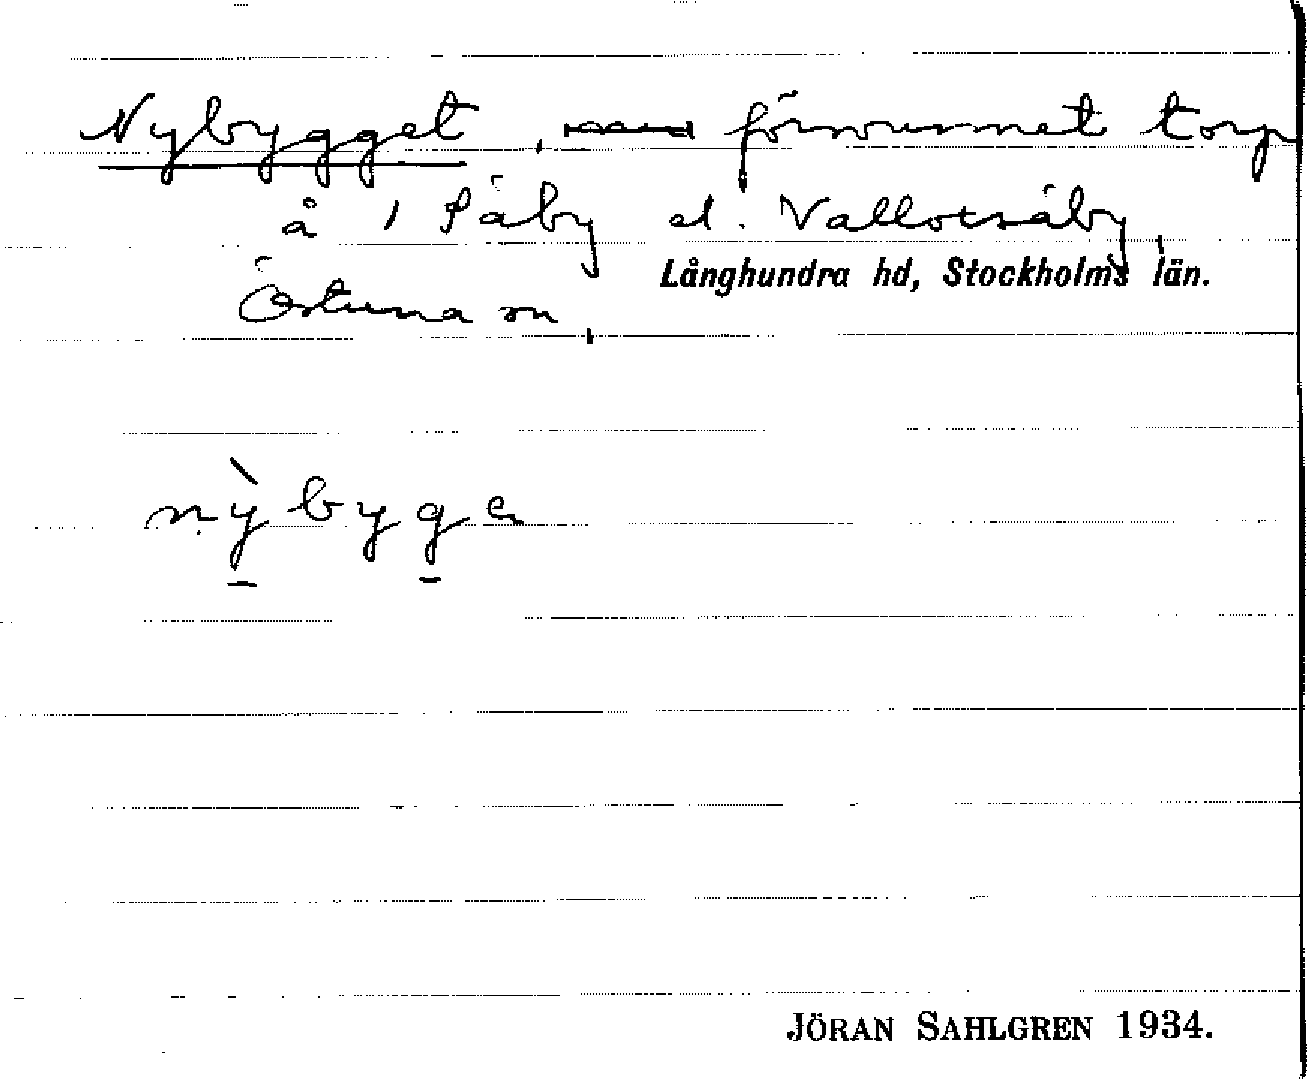 Nybygget, försvunnet torp
å 1 Säby el. Vallotsäby,
Långhundra hd, Stockholms län.
Östuna sn,
nỳbyge
JÖRAN SAHLGREN 1934.